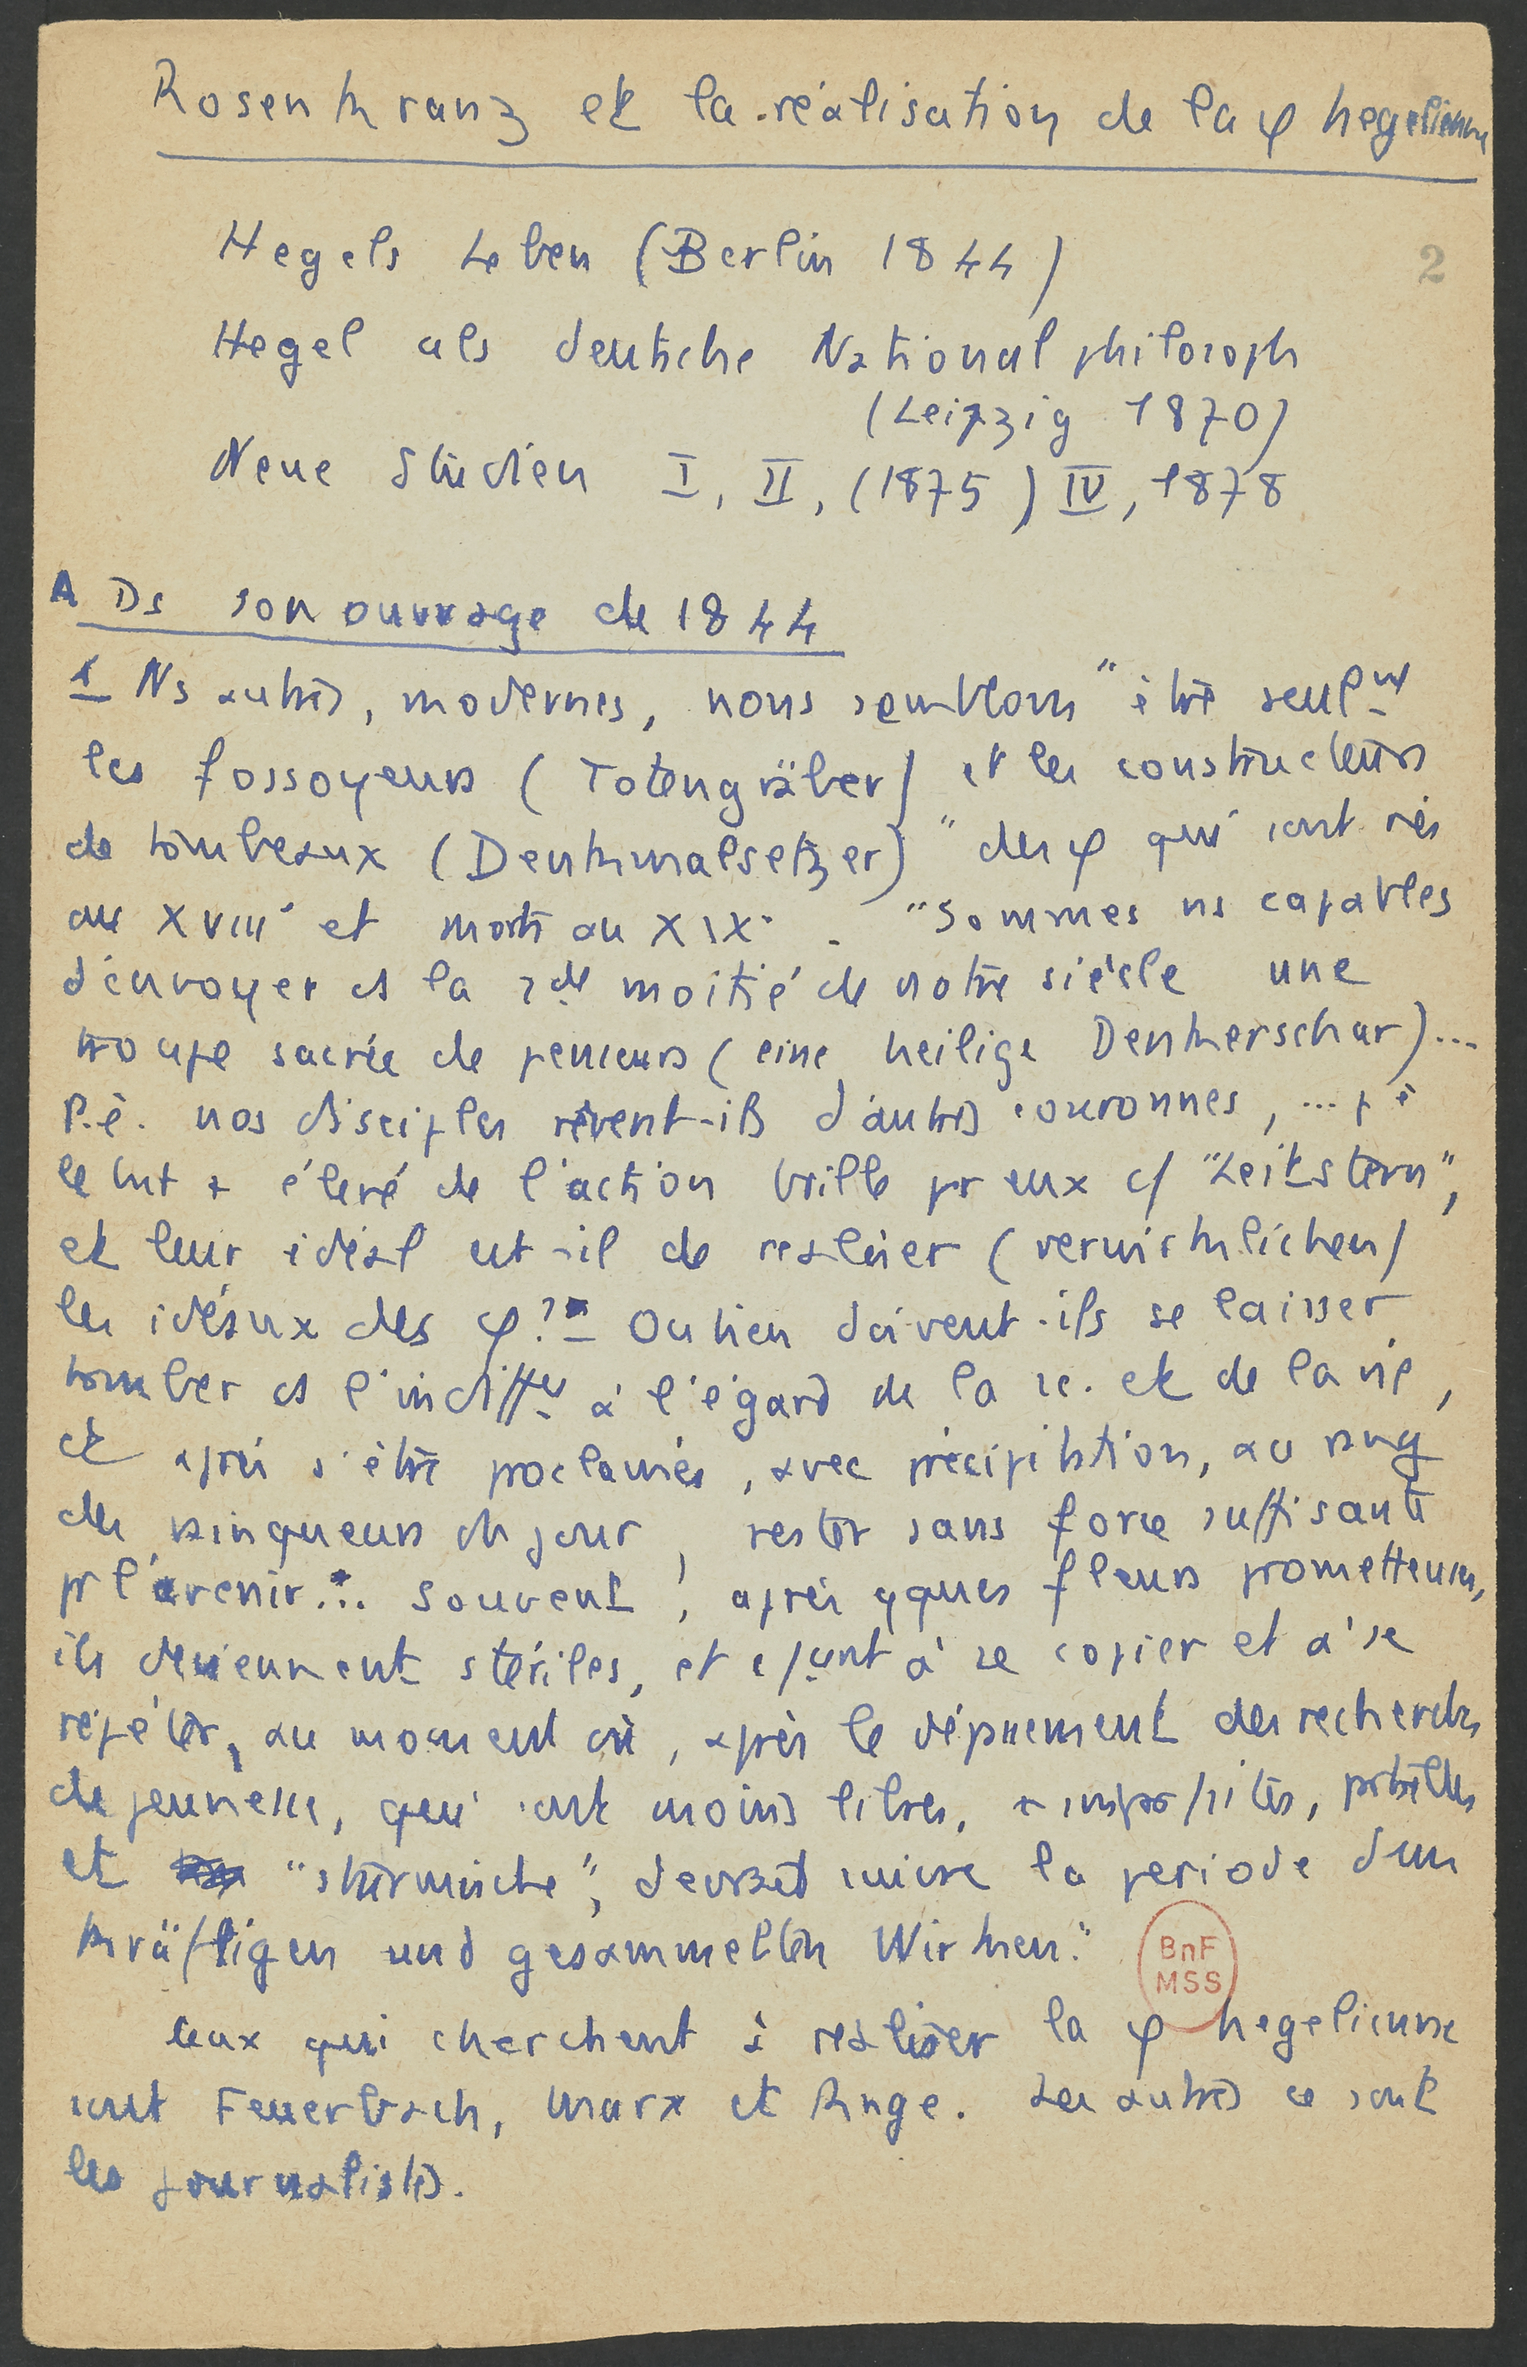 Rosenkranz et la réalisation de la φ hegelienne
Hegels Leben (Berlin 1844)
2
Hegel als deutsche Nationalphilosoph
(Leipzig 1870)
Neue Studien I, II, (1875) IV, 1878
A Ds son ouvrage de 1844
1 Ns autres, modernes, nous semblons "être seulnt
les fossoyeurs (Totengräber) et les constructeurs
de tombeaux (Denkmalsetzer)" des φ qui sont nés
au XVIII° et morts au XIX°. "Sommes ns capables
d'envoyer ds la 2de moitié de notre siècle une
troupe sacrée de penseurs (eine heilige Denkerschar)...
P.ê. nos disciples rêvent-ils d'autres couronnes, ... p ê
le but + élevé de l'action brille pr eux c/ "Leitstern",
et leur idéal est-il de realiser (verwirklichen)
les idéaux des φ?" Ou bien doivent-ils se laisser
tomber ds l'indiffce à l'égard de la sc. et de la vie,
et après s'être proclamés, avec précipitation, au rang
des vainqueurs du jour, rester sans force suffisante
pr l'avenir... Souvent, après qques fleurs prometteuses,
ils deviennent stériles, et à se copier et à se
répéter, au moment où, après le dépnement des recherches
de jeunesse, qui sont moins libres, +
et "stürmische", devrait suivre la periode d'un
kräftigen und gesammelten Wirken."
Ceux qui cherchent à realiser la φ hegelienne
sont Feuerbach, Marx et Ruge. Les autres ce sont
les journalistes.
BnF
MSS